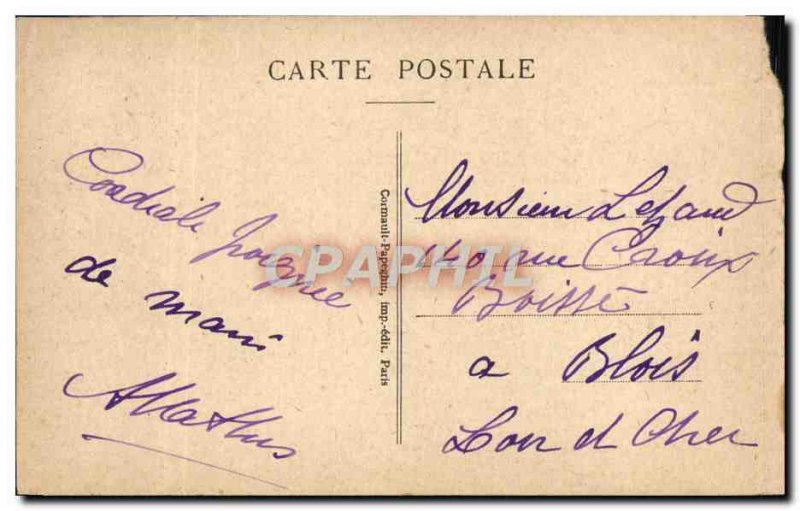 CARTE POSTALE
Cordiale Poignée
de main
AMathis
Cormault-Papeghin, imp.-édit. Paris
Monsieur
140 rue Croix
Boissé
a Blois
Loir et Cher
CPAPHIL